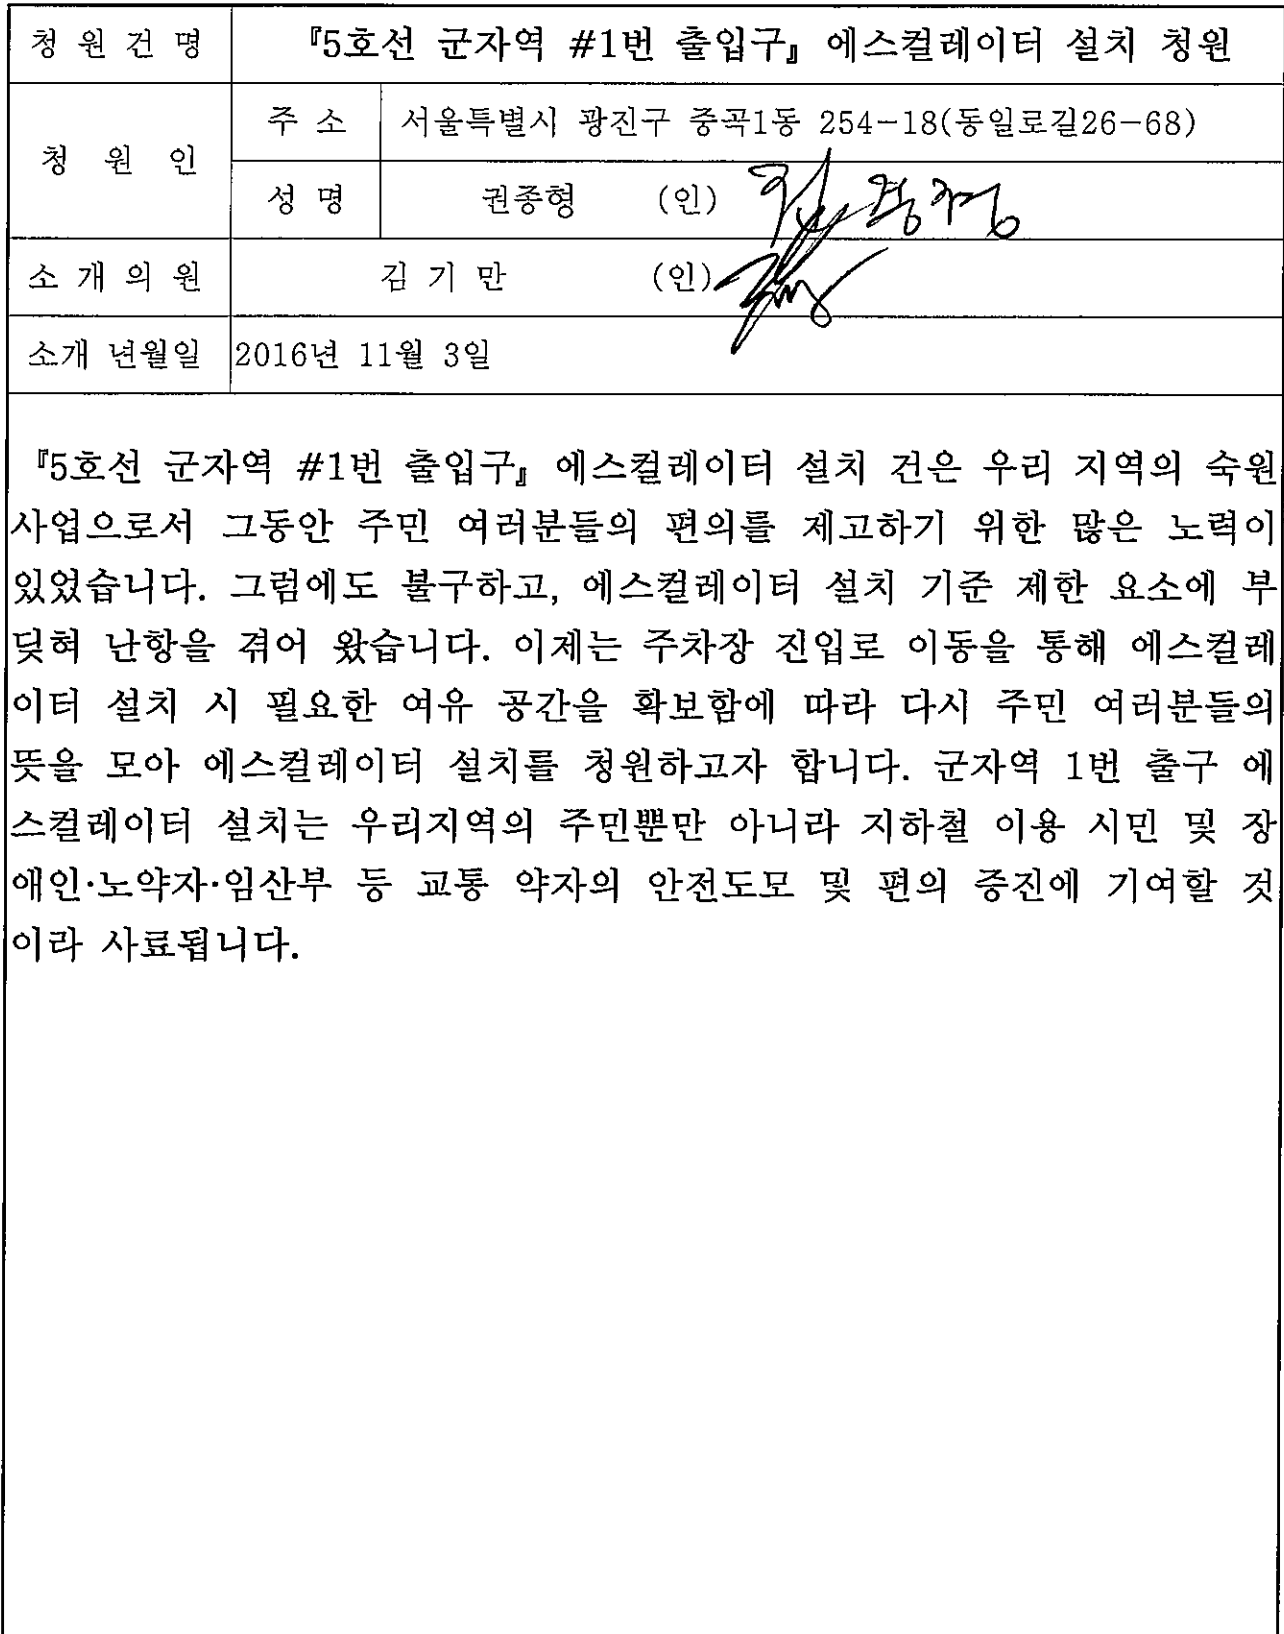 청 원 건 명 『5호선 군자역 #1번 출입구』 에스컬레이터 설치 청원
청 원 인
주 소 서울특별시 광진구 중곡1동 254-18(동일로길26-68)
성 명 권종형 (인)
소 개 의 원 김 기 만 (인)
소개 년월일 2016년 11월 3일
『5호선 군자역 #1번 출입구』 에스컬레이터 설치 건은 우리 지역의 숙원
사업으로서 그동안 주민 여러분들의 편의를 제고하기 위한 많은 노력이
있었습니다. 그럼에도 불구하고, 에스컬레이터 설치 기준 제한 요소에 부
딪혀 난항을 겪어 왔습니다. 이제는 주차장 진입로 이동을 통해 에스컬레
이터 설치 시 필요한 여유 공간을 확보함에 따라 다시 주민 여러분들의
뜻을 모아 에스컬레이터 설치를 청원하고자 합니다. 군자역 1번 출구 에
스컬레이터 설치는 우리지역의 주민뿐만 아니라 지하철 이용 시민 및 장
애인·노약자·임산부 등 교통 약자의 안전도모 및 편의 증진에 기여할 것
이라 사료됩니다.